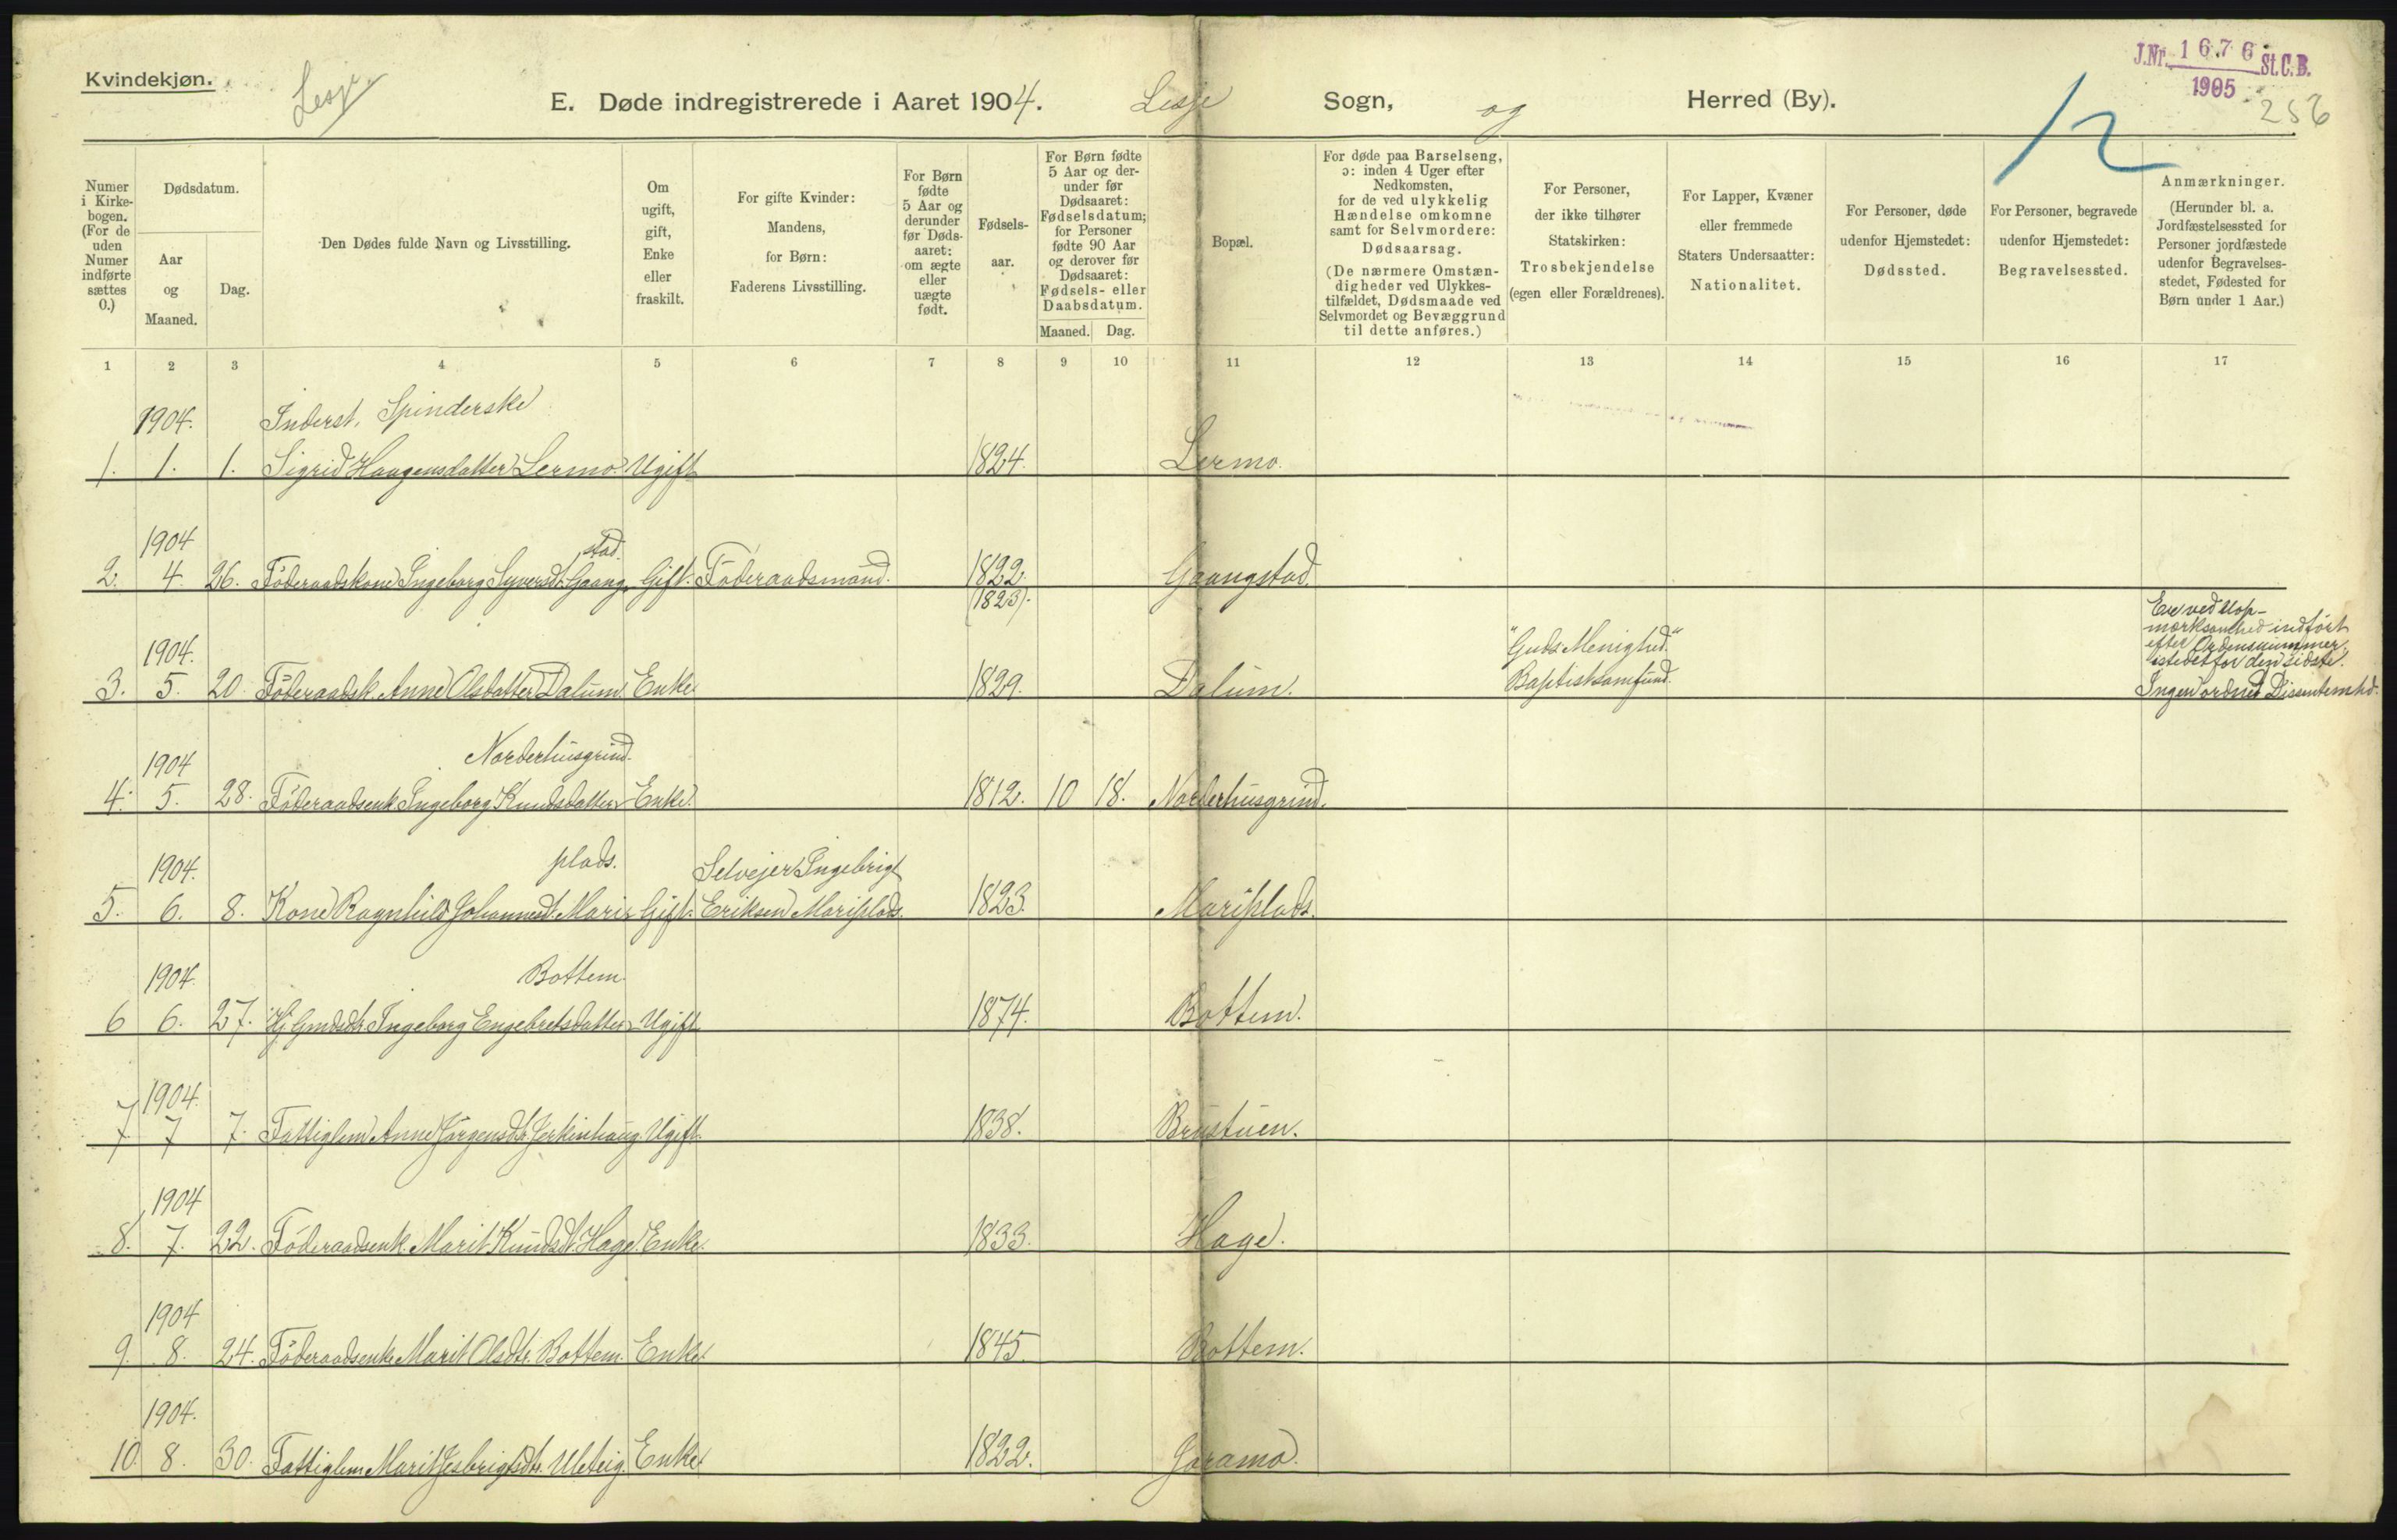 Kvindekjøn.
Lesje
E. Døde indregistrerede i Aaret 1904. Lesje Sogn, og Herred (By).
J.Nr. 1676 St.C.B.
1905
256
12
Numer i Kirkebogen. (For de uden Numer indførte sættes 0.)
Dødsdatum.
Aar og Maaned.
Dag.
Den Dødes fulde Navn og Livsstilling.
Om ugift, gift, Enke eller fraskilt.
For gifte Kvinder: Mandens, for Børn: Faderens Livsstilling.
For Børn fødte 5 Aar og derunder før Dødsaaret: om ægte eller uægte født.
Fødselsaar.
For Børn fødte 5 Aar og derunder før Dødsaaret: Fødselsdatum; for Personer fødte 90 Aar og derover før Dødsaaret: Fødsels- eller Daabsdatum.
Maaned. Dag.
Bopæl.
For døde paa Barselseng, ɔ: inden 4 Uger efter Nedkomsten, for de ved ulykkelig Hændelse omkomne samt for Selvmordere: Dødsaarsag. (De nærmere Omstændigheder ved Ulykkestilfældet, Dødsmaade ved Selvmordet og Bevæggrund til dette anføres.)
For Personer, der ikke tilhører Statskirken: Trosbekjendelse (egen eller Forældrenes).
For Lapper, Kvæner eller fremmede Staters Undersaatter: Nationalitet.
For Personer, døde udenfor Hjemstedet: Dødssted.
For Personer, begravede udenfor Hjemstedet: Begravelsessted.
Anmærkninger. (Herunder bl. a. Jordfæstelsessted for Personer jordfæstede udenfor Begravelsesstedet, Fødested for Børn under 1 Aar.)
1 2 3 4 5 6 7 8 9 10 11 12 13 14 15 16 17
1904. Inderst, Spinderske
1. 1. 1. Sigrid Haagensdatter Lermo. Ugift 1824. Lermo.
1904 stad.
2. 4. 26. Föderaadskone Ingeborg Syversdt. Gaang Gift. Föderaadsmand. 1822. Gaangstad.
(1823).
1904. "Guds Menighed."
3. 5. 20. Föderaadsk. Anne Olsdatter Dalum. Enke 1829. Dalum. Baptistsamfund.
Er ved Uop-
mærksomhed indført
efter Ordensnummer
istedetfor den sidste.
Ingen ordnet Dissentermhd.
1904 Norderhusgrind.
4. 5. 28. Föderaadsenk. Ingeborg Knudsdatter Enke. 1812. 10 18. Norderhusgrind.
1904. plads. Selvejer Ingebrigt
5. 6. 8. Kone Ragnhild Johannesdt. Maris Gift. Eriksen Marisplads. 1823. Marisplads.
1904. Bottem.
6 6. 27. Gmdsdtr. Ingeborg Engebretsdatter Ugift 1874. Bottem.
1904.
7. 7 7. Fattiglem Anne Jörgensdtr. Jerkinhaug. Ugift. 1838. Brustuen.
1904
8. 7. 22. Föderaadsenk. Marit Knudsdt. Hage. Enke. 1833. Hage.
1904
9. 8. 24. Föderaadsenke Marit Olsdtr. Bottem. Enke. 1845. Bottem.
1904.
10. 8. 30. Fattiglem Marit Uleteig. Enke. 1822. Joramo.